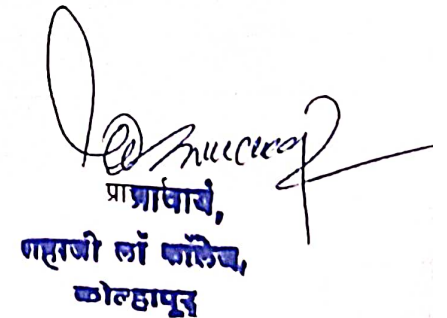 प्राप्राचार्य,
शहाजी लॉ कॉलेज,
कोल्हापूर